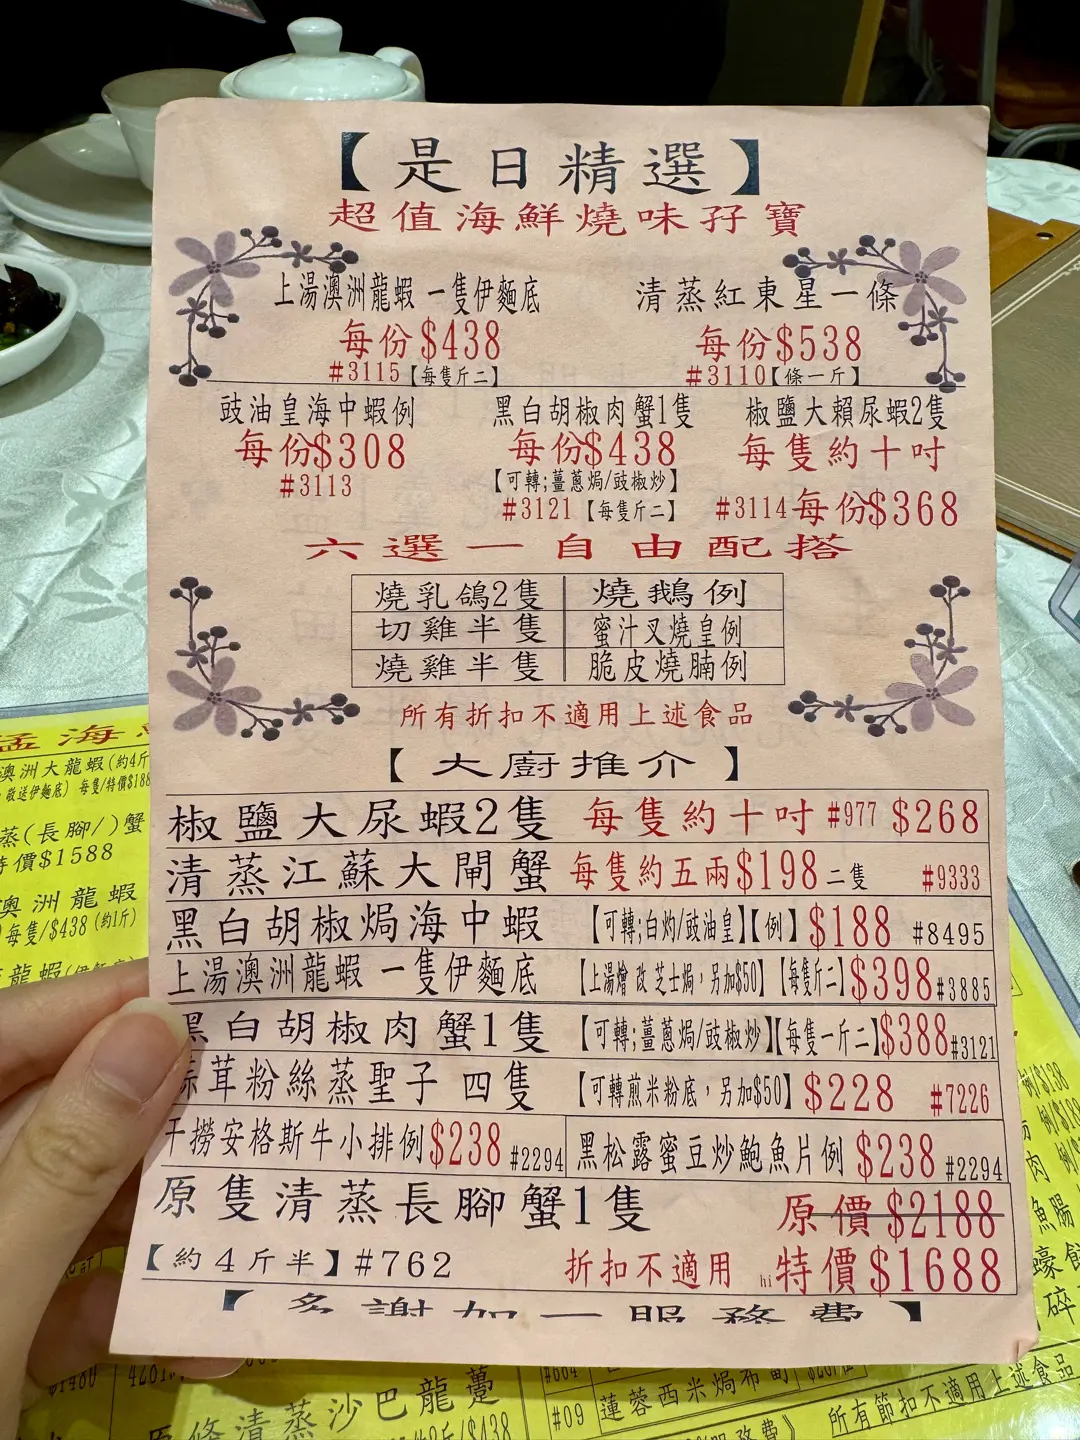 【是日精選】
超值海鮮燒味孖寶
上湯澳洲龍蝦 一隻伊麵底
每份$438
#3115【每隻斤二】
清蒸紅東星一條
每份$538
#3110【條一斤】
豉油皇海中蝦例
每份$308
#3113
黑白胡椒肉蟹1隻
每份$438
【可轉;薑蔥焗/豉椒炒】
#3121【每隻斤二】
椒鹽大賴尿蝦2隻
每隻約十吋
#3114每份$368
六選一自由配搭
燒乳鴿2隻 燒鵝例
切雞半隻 蜜汁叉燒皇例
燒雞半隻 脆皮燒腩例
所有折扣不適用上述食品
【大廚推介】
椒鹽大尿蝦2隻 每隻約十吋 #977 $268
清蒸江蘇大閘蟹 每隻約五兩$198二隻 #9333
黑白胡椒焗海中蝦 【可轉;白灼/豉油皇】【例】$188 #8495
上湯澳洲龍蝦 一隻伊麵底 【上湯燴 改 芝士焗，另加$50】【每隻斤二】$398 #3885
黑白胡椒肉蟹1隻 【可轉;薑蔥焗/豉椒炒】【每隻一斤二】$388 #3121
蒜茸粉絲蒸聖子 四隻 【可轉煎米粉底，另加$50】 $228 #7226
干撈安格斯牛小排例$238 #2294 黑松露蜜豆炒鮑魚片例 $238 #2294
原隻清蒸長腳蟹1隻 原價$2188
【約4斤半】#762 折扣不適用 hi特價$1688
【多謝加一服務費】
猛海
澳洲大龍蝦(約4斤
敬送伊麵底) 每隻/特價$188
蒸(長腳/)蟹
特價$1588
澳洲龍蝦
每隻/$438 (約1斤)
龍蝦
例/$138
肉
魚腸
蠔餅
碎
$1480
原條清蒸沙巴龍躉
/$438
#664
#09 蓮蓉西米焗布甸
所有節扣不適用上述食品